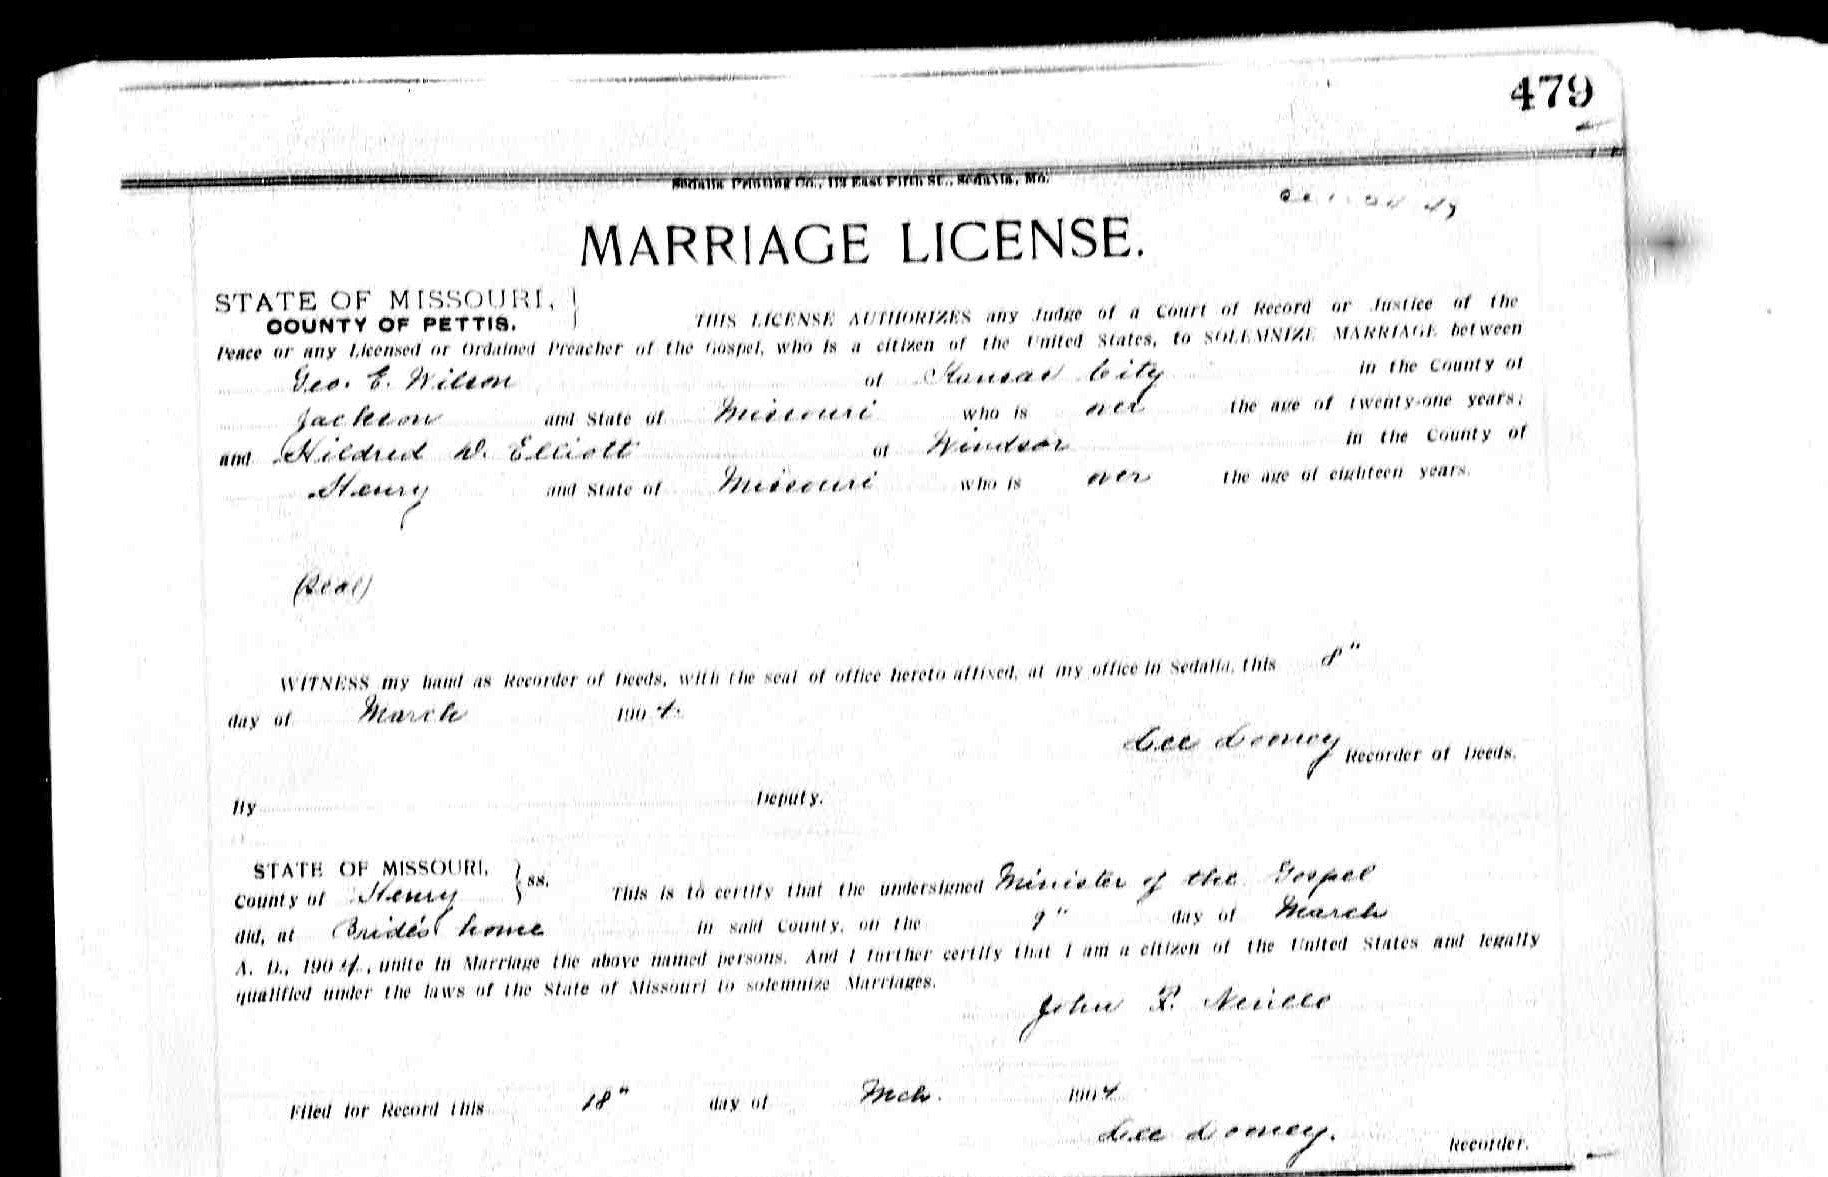 479
Sedalia Printing Co., 119 East Fifth St., Sedalia, Mo.
MARRIAGE LICENSE.
STATE OF MISSOURI,
COUNTY OF PETTIS.
THIS LICENSE AUTHORIZES any Judge of a Court of Record or Justice of the
Peace or any Licensed or Ordained Preacher of the Gospel, who is a citizen of the United States, to SOLEMNIZE MARRIAGE between
Geo. E. Wilson of Kansas City in the County of
Jackson and State of Missouri who is over the age of twenty-one years;
and Hildred D. Elliott of Windsor in the County of
Henry and State of Missouri who is over the age of eighteen years.
(Seal)
WITNESS my hand as Recorder of Deeds, with the seal of office hereto affixed, at my office in Sedalia, this 8"
day of March 1904.
Recorder of Deeds.
By Deputy.
STATE OF MISSOURI,
County of Henry } ss. This is to certify that the undersigned Minister of the Gospel
did, at Bride's home in said County, on the 9" day of March
A. D., 1904, unite in Marriage the above named persons. And I further certify that I am a citizen of the United States and legally
qualified under the laws of the State of Missouri to solemnize Marriages.
John P.
Filed for Record this 18" day of Mch. 1904
Recorder.